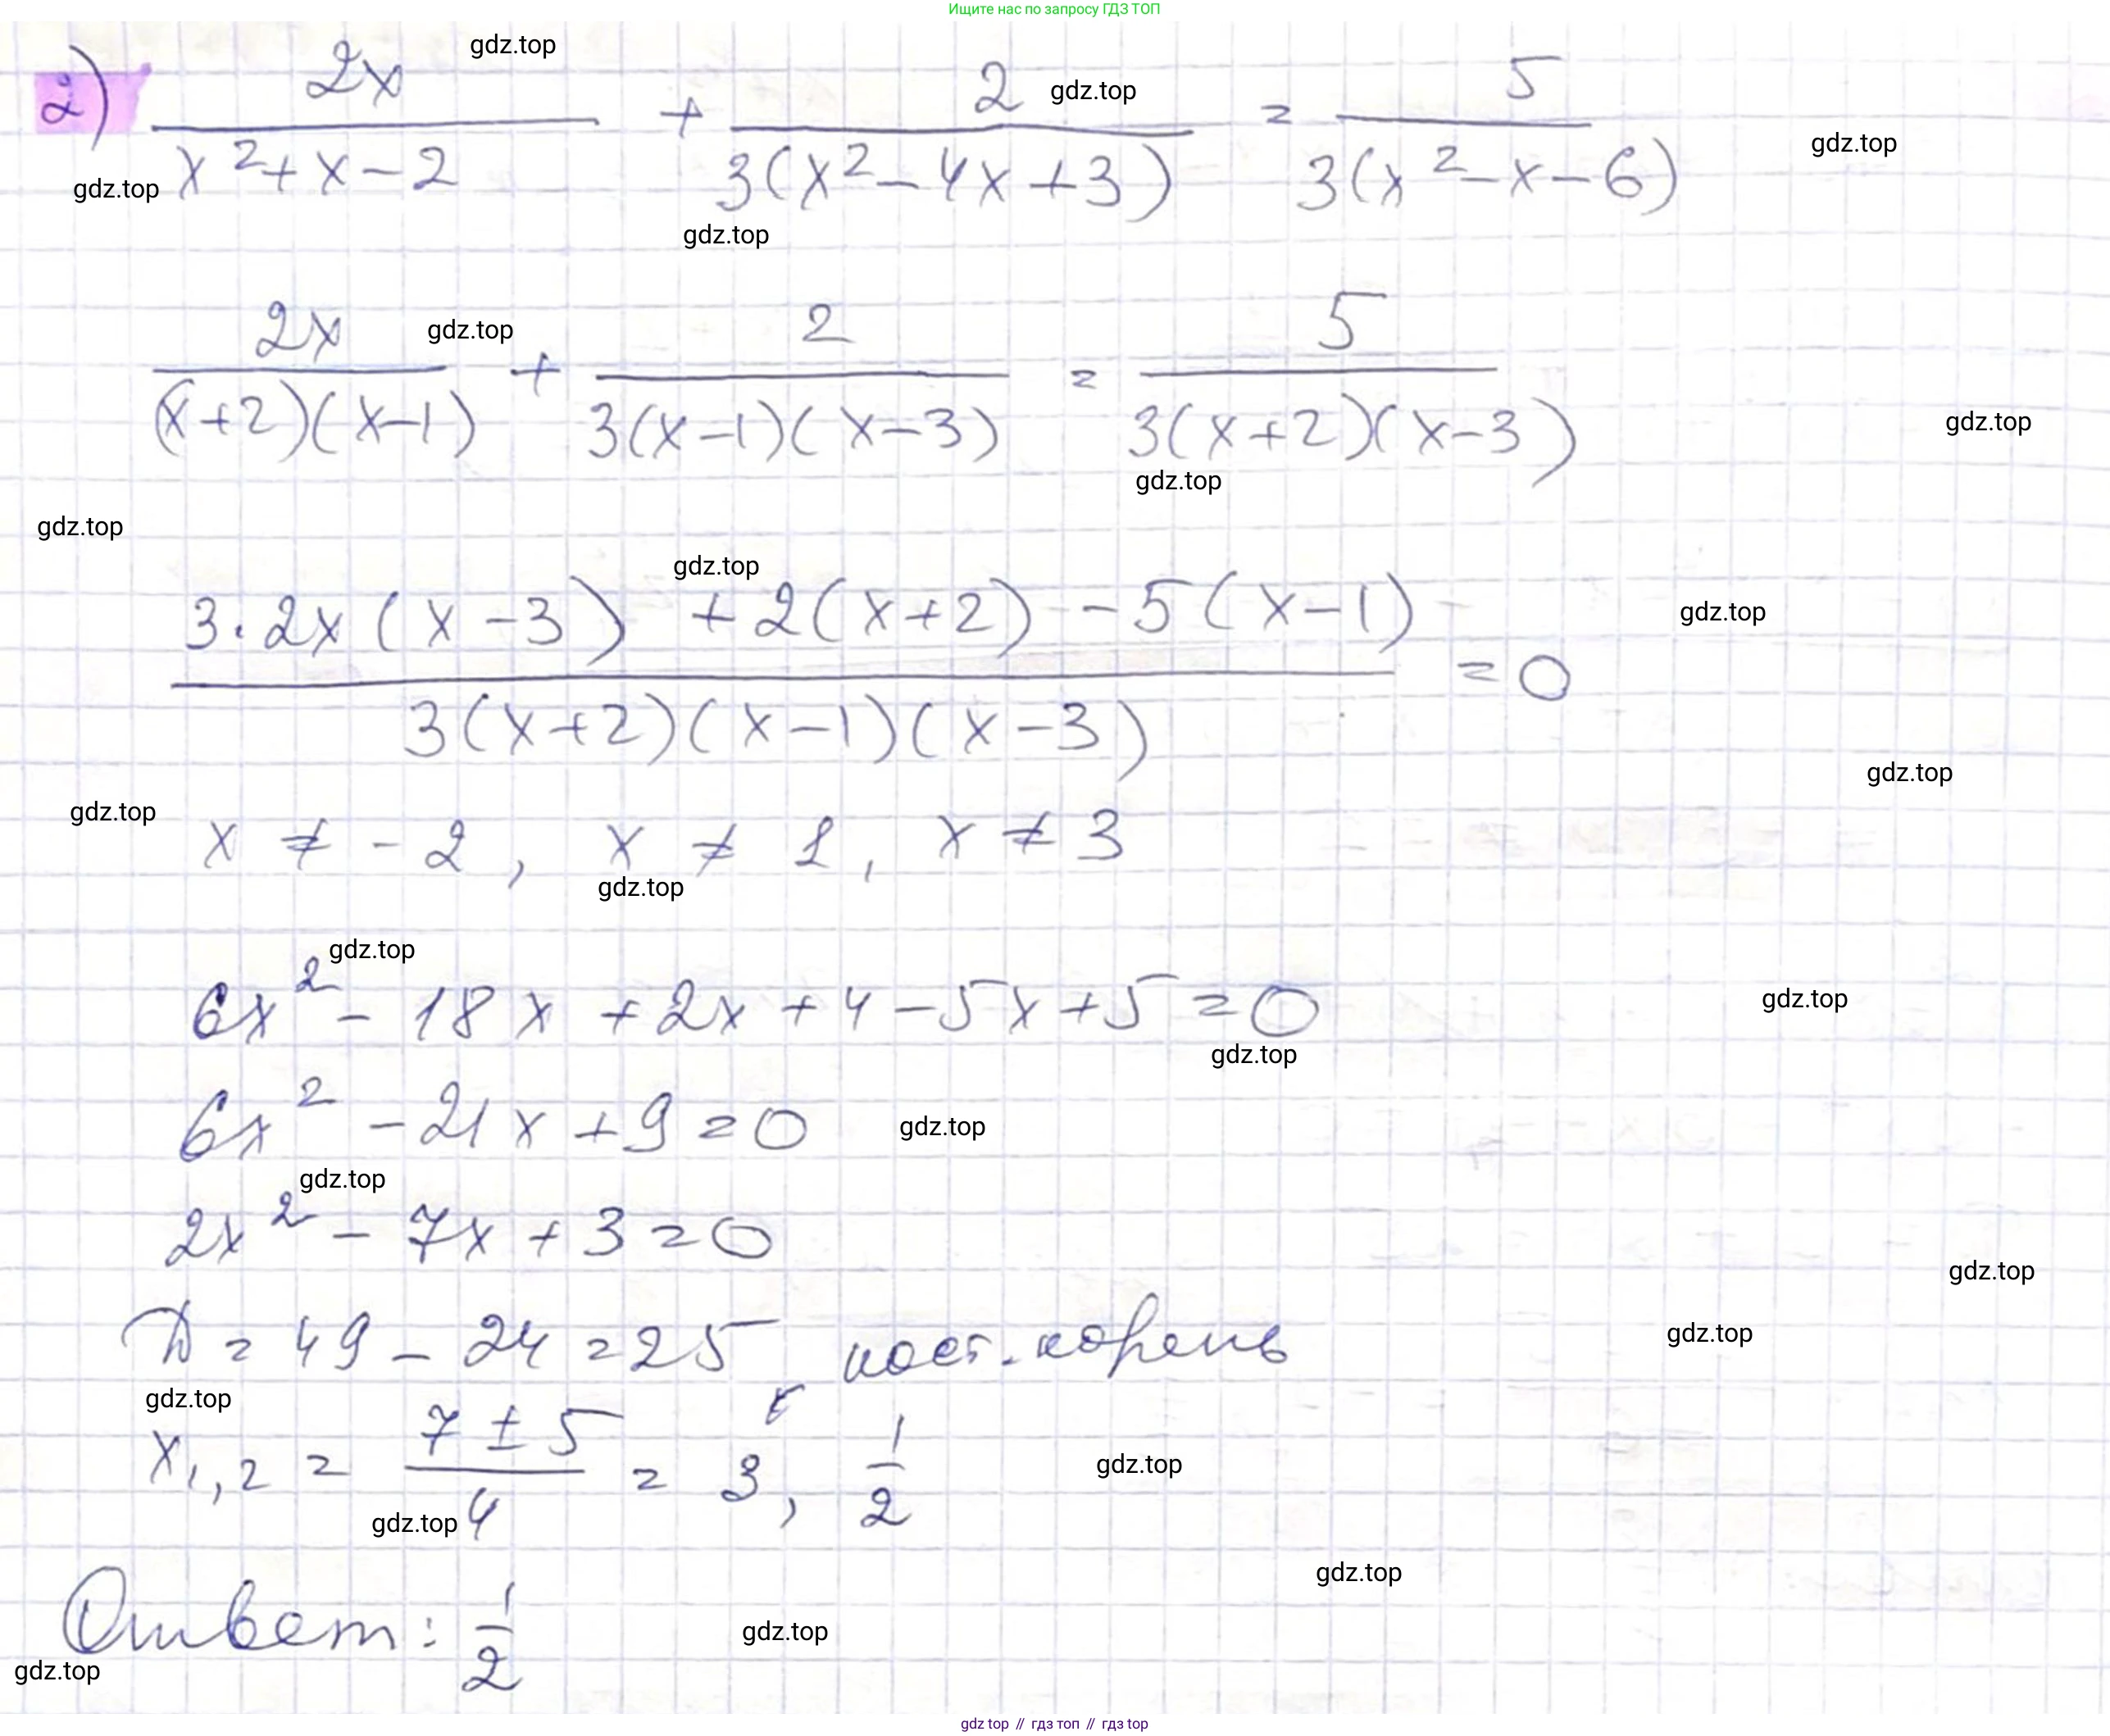 Ищите нас по запросу ГДЗ ТОП
gdz.top
2) 2x/(x²+x-2) + 2/(3(x²-4x+3)) = 5/(3(x²-x-6))
gdz.top
gdz.top
gdz.top
gdz.top
2x/((x+2)(x-1)) + 2/(3(x-1)(x-3)) = 5/(3(x+2)(x-3))
gdz.top
gdz.top
gdz.top
gdz.top
gdz.top
(3·2x(x-3) + 2(x+2) - 5(x-1))/(3(x+2)(x-1)(x-3)) = 0
gdz.top
gdz.top
gdz.top
x ≠ -2, x ≠ 1, x ≠ 3
gdz.top
gdz.top
6x² - 18x + 2x + 4 - 5x + 5 = 0
gdz.top
gdz.top
6x² - 21x + 9 = 0
gdz.top
gdz.top
2x² - 7x + 3 = 0
gdz.top
D = 49 - 24 = 25 пост. корень
gdz.top
gdz.top
x₁,₂ = (7 ± 5)/4 = 3, 1/2
gdz.top
gdz.top
gdz.top
Ответ: 1/2
gdz.top
gdz.top
gdz top // гдз топ // гдз top